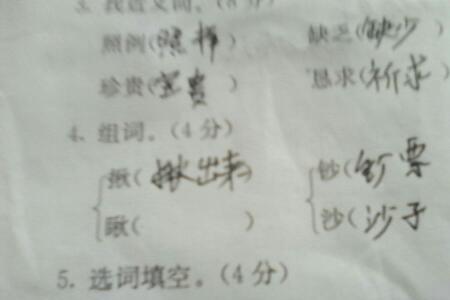 3. 找近义词。(8分)
照例(照样) 缺乏(缺少)
珍贵(宝贵) 恳求(祈求)
4. 组词。(4分)
揪(揪出来) 钞(钞票
瞅( ) 沙(沙子
5. 选词填空。(4分)